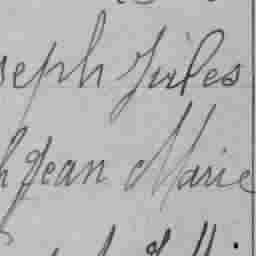 seph Jules
h Jean Marie